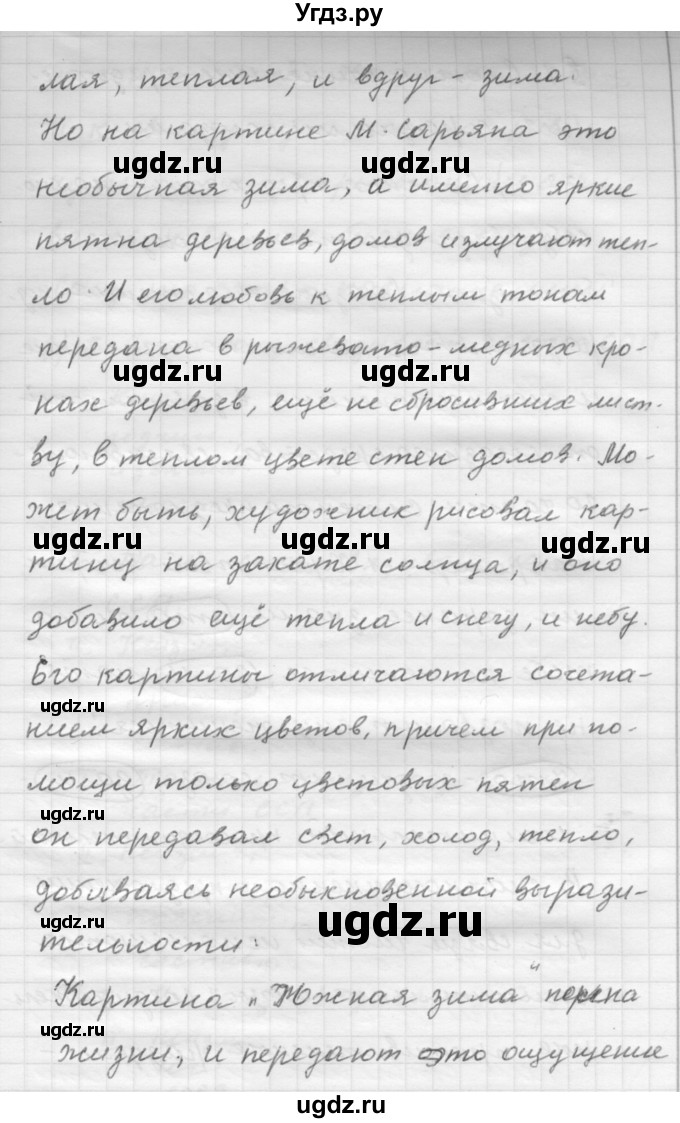 Угдз.ру
лая, теплая, и вдруг - зима.
Но на картине М. Сарьяна это
ugdz.ru ugdz.ru
необычная зима, а именно яркие
пятна деревьев, домов излучают теп-
ugdz.ru ugdz.ru
ло. И его любовь к теплым тонам
передана в рыжевато-медных кро-
ugdz.ru ugdz.ru
нах деревьев, ещё не сбросивших лист-
ву, в теплом цвете стен домов. Мо-
жет быть, художник рисовал кар-
ugdz.ru ugdz.ru ugdz.ru
тину на закате солнца, и оно
добавило ещё тепла и снегу, и небу.
Его картины отличаются сочета-
ugdz.ru
нием ярких цветов, причем при по-
мощи только цветовых пятен
ugdz.ru
он передавал свет, холод, тепло,
добиваясь необыкновенной вырази-
ugdz.ru ugdz.ru
тельности.
Картина "Южная зима" полна
ugdz.ru
жизни, и передают это ощущение
ugdz.ru